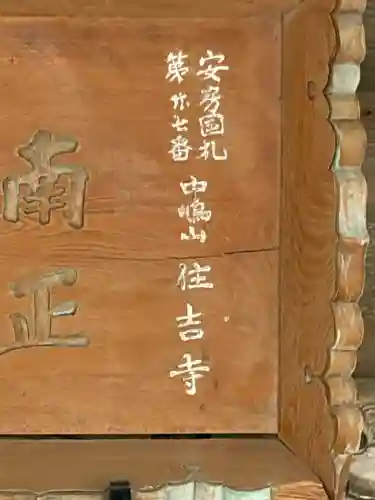 安房國札
第廿七番
中嶋山
住吉寺
南正